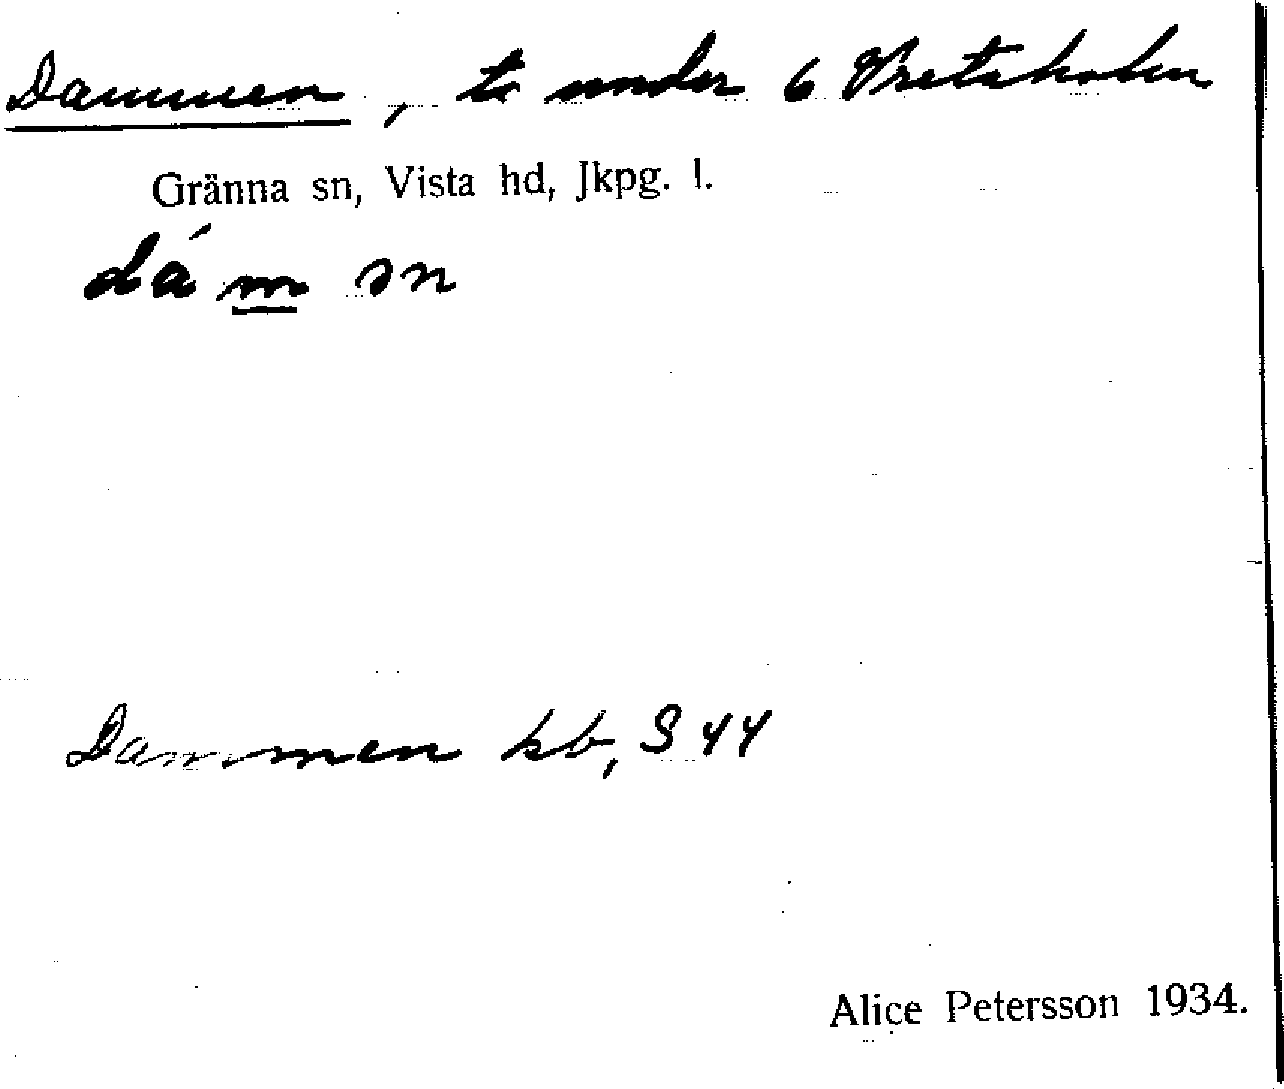 Dammen, to under 6 Vretaholm
Gränna sn, Vista hd, Jkpg. l.
dám̲ ən
Dammen kb, S 44
Alice Petersson 1934.